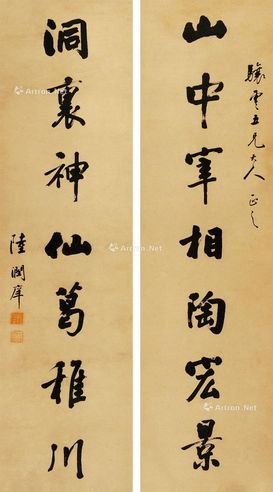 驤雲五兄大人正之
山中宰相陶宏景
洞裏神仙葛稚川
陸潤庠
Artron.Net
Artron.Net
Artron.Net
Artron.Net
Artron.Net